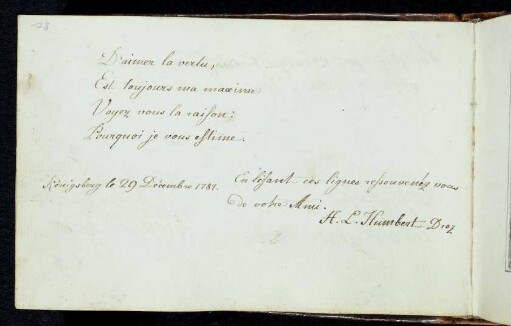 78
D'aimer la vertu,
Est toujours ma maxime
Voyez vous la raiſon:
Pourquoi je vous eſtime.
Königsberg le 29 Décembre 1781.
En léſant ces lignes reſsouvenéz vous
de votre Ami.
H. L. Humbert Droz